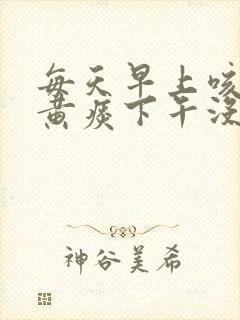 每天早上咳
黄痰下午没
神谷美希